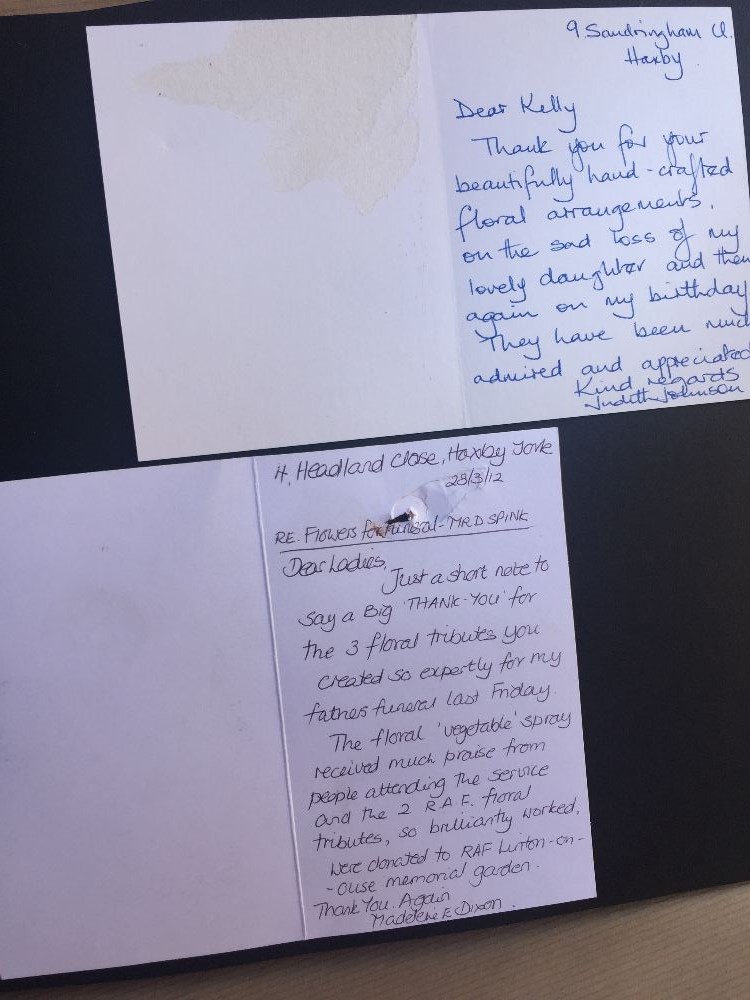 9 Sandringham Cl.
Haxby.
Dear Kelly
Thank you for your
beautifully hand-crafted
floral arrangements,
on the sad loss of my
lovely daughter and then
again on my birthday
They have been much
admired and appreciated
Kind regards
Judith Johnson
4, Headland Close, Haxby York
28/3/12
RE. Flowers for funeral - MR D SPINK
Dear Ladies,
Just a short note to
say a Big 'THANK-YOU' for
the 3 floral tributes you
created so expertly for my
fathers funeral last Friday.
The floral 'vegetable' spray
received much praise from
people attending the service
and the 2 R.A.F. floral
tributes, so brilliantly worked,
were donated to RAF Linton-on-
-ouse memorial garden.
Thank You Again
Madelene E Dixon.